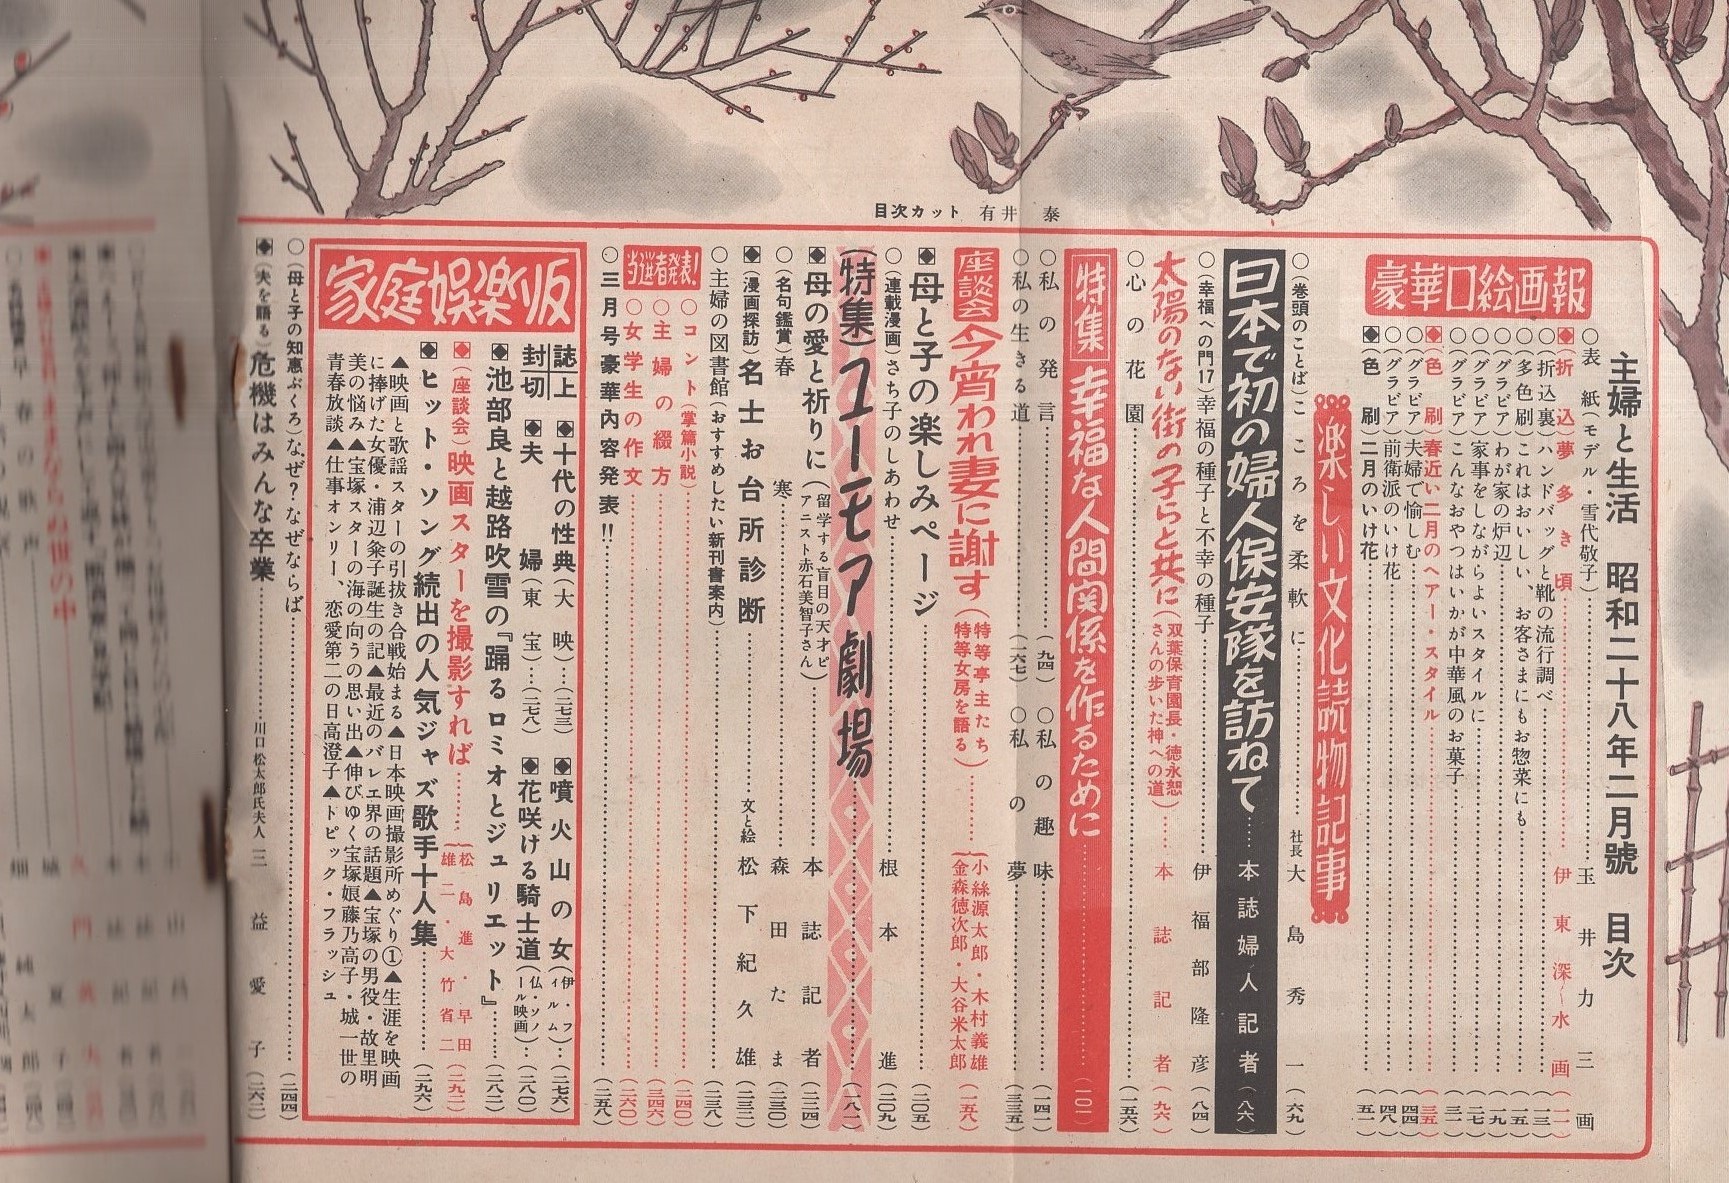 目次カット 有井 泰
主婦と生活 昭和二十八年二月號 目次
豪華口絵画報
○表紙(モデル・雪代敬子)……玉井力三画
◆(折込)夢多き頃……伊東深水画(一一)
○(折込裏)ハンドバッグと靴の流行調べ……(一三)
○(多色刷)これはおいしい、お客さまにもお惣菜にも……(一五)
○(グラビア)わが家の炉辺……(一九)
○(グラビア)家事をしながらよいスタイルに……(二七)
○(グラビア)こんなおやつはいかが中華風のお菓子……(三一)
◆色刷 春近い二月のヘアー・スタイル……(三五)
○(グラビア)夫婦で愉しむ……(四四)
○(グラビア)前衛派のいけ花……(四八)
◆色刷 二月のいけ花……(五一)
楽しい文化読物記事
○(巻頭のことば)こころを柔軟に……社長 大島秀一(六九)
日本で初の婦人保安隊を訪ねて……本誌婦人記者(八六)
○(幸福への門17)幸福の種子と不幸の種子……伊福部隆彦(八四)
太陽のない街の子らと共に(双葉保育園長・徳永恕さんの歩いた神への道)……本誌記者(九六)
○心の花園……(一五六)
特集 幸福な人間関係を作るために……(一〇一)
○私の発言……(九四) ○私の趣味……(一四一)
○私の生きる道……(一六七) ○私の夢……(三三五)
座談会 今宵われ妻に謝す(特等亭主たち特等女房を語る)……(小絲源太郎・木村義雄 金森徳次郎・大谷米太郎(一五八)
◆母と子の楽しみページ……(二〇五)
○(連載漫画)さち子のしあわせ……根本進(二〇九)
(特集)ユーモア劇場……(一八一)
◆母の愛と祈りに(留学する盲目の天才ピアニスト赤石美智子さん)……本誌記者(二二四)
○(名句鑑賞)春寒……森田たま(二三〇)
◆(漫画探訪)名士お台所診断……文と絵 松下紀久雄(二三二)
○主婦の図書館(おすすめしたい新刊書案内)……(二三八)
当選者発表!
○コント(掌篇小説)……(二四〇)
○主婦の綴方……(二四六)
○女学生の作文……(二六〇)
○三月号豪華内容発表!!……(二五八)
家庭娯楽版
誌上封切
◆十代の性典(大映)……(二七三) ◆噴火山の女(伊・フィルム)……(二七六)
◆夫婦(東宝)……(二七八) ◆花咲ける騎士道(仏・ソノール映画)…(二八〇)
◆池部良と越路吹雪の『踊るロミオとジュリエット』……(二八二)
◆(座談会)映画スターを撮影すれば……(松島進・早田雄二・大竹省二(二九二)
◆ヒット・ソング続出の人気ジャズ歌手十人集……(二九六)
▲映画と歌謡スターの引抜き合戦始まる▲日本映画撮影所めぐり①▲生涯を映画
に捧げた女優・浦辺粂子誕生の記▲最近のバレエ界の話題▲宝塚の男役・故里明
美の悩み▲宝塚スターの海の向うの思い出▲伸びゆく宝塚娘藤乃高子・城一世の
青春放談▲仕事オンリー、恋愛第二の日高澄子▲トピック・フラッシュ
○(母と子の知恵ぶくろ)なぜ?なぜならば……(二四四)
◆(夫を語る)危機はみんな卒業……川口松太郎氏夫人 三益愛子(二六二)